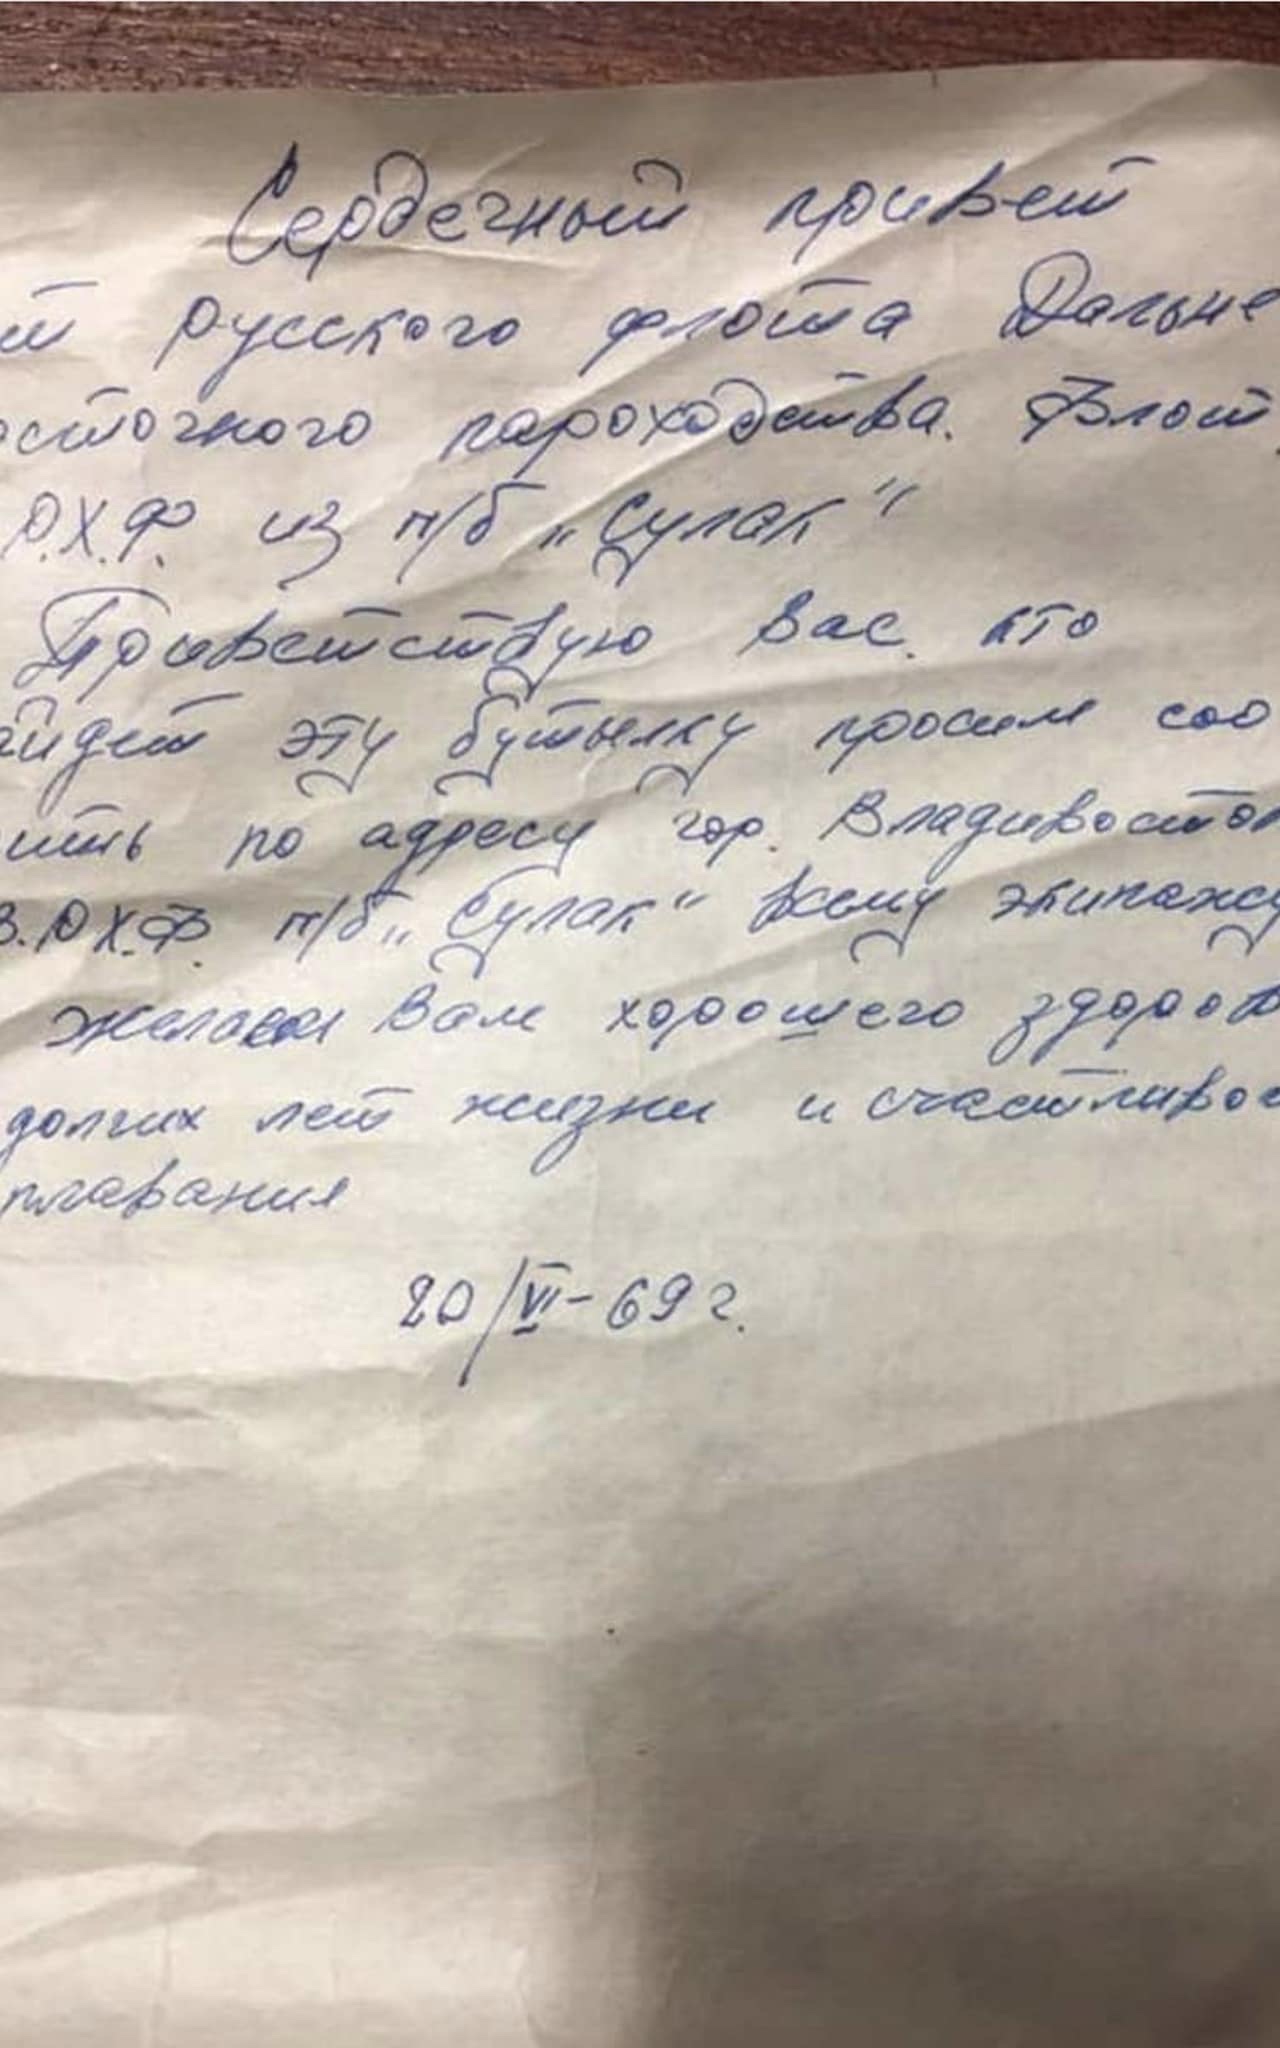 Сердечный привет
т русского флота Дальне
осточного пароходства. Флот
Р.Х.Ф. из п/б „Сулак"
Приветствую Вас кто
йдет эту бутылку просим соо
ить по адресу гор. Владивосток
В.РХ.Ф. п/б „Сулак" Всему экипажу
желаем Вам хорошего здоров
долгих лет жизни и счастливое
плавания
20/VI-69 г.